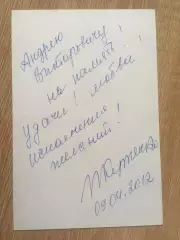 Андрею
Викторовичу
на память!
Удачи! Любви!
исполнения
желаний!
09.04.2012